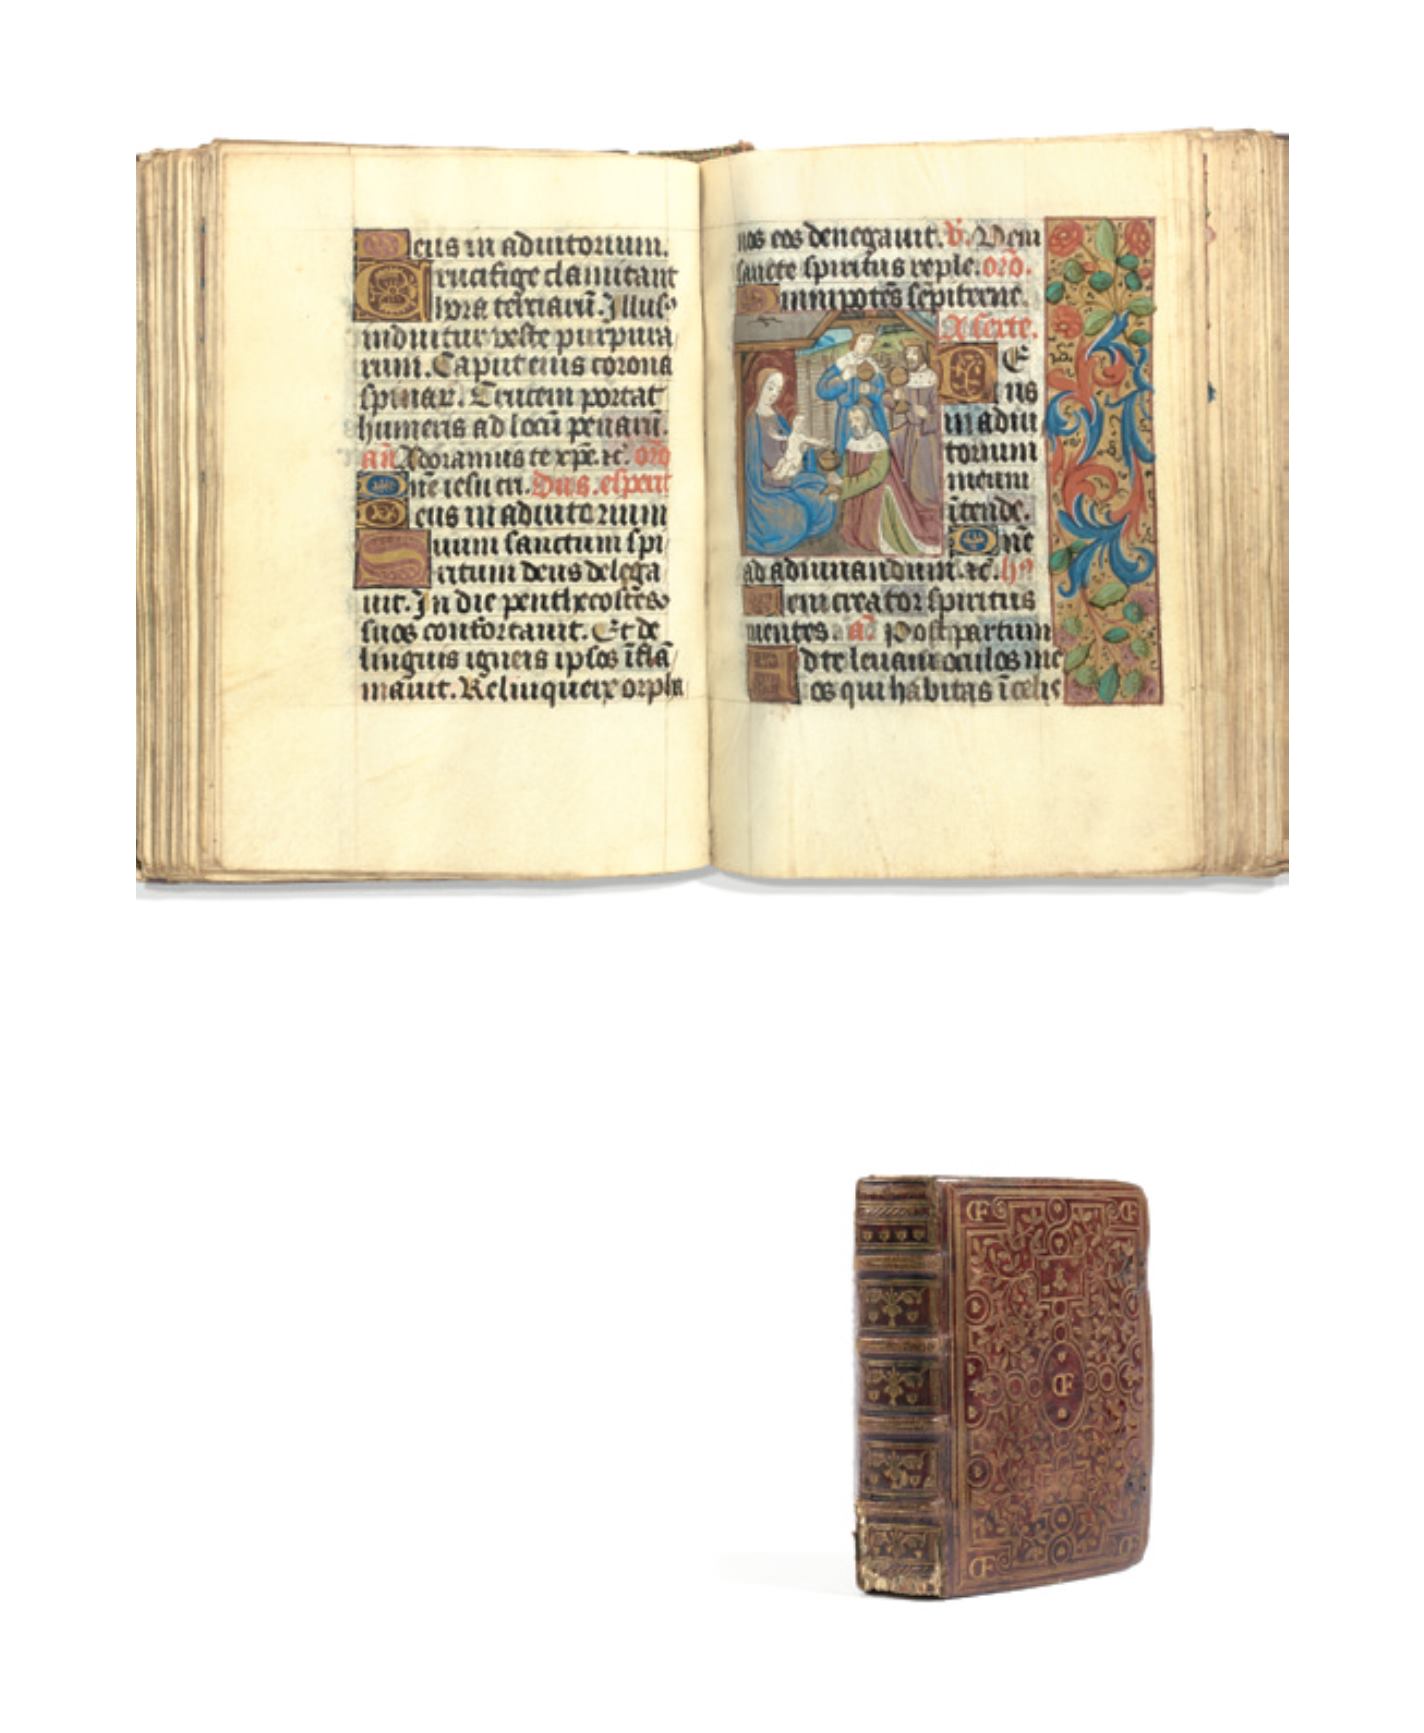 Deus in adiutorium.
Crucifige clamitant
hora terciarū. Illus⁹
induitur veste purpura
rum. Caput eius corona
spinar. Crucem portat
humeris ad locū penarū.
an̄ Adoramus te xp̄e. ⁊c̄. orō
Dn̄e iesu cri. Du s. esperit
Deus in adiutorium
Suum sanctum spi
ritum deus delega
uit. In die penthecostes
suos confortauit. Et de
linguis igneis ipsos īflā
mauit. Relinquere orpha
nos eos denegauit. v̄. Veni
sancte spiritus reple. orō.
Omnipotēs sēpiterne.
A sexte.
DE
us
in adiu
torium
meum
ītende.
Dn̄e
ad adiuuandum. ⁊c̄. hȳ
Veni creator spiritus
mentes. an̄ Post partum
Ad te leuaui oculos me
os qui habitas ī celis